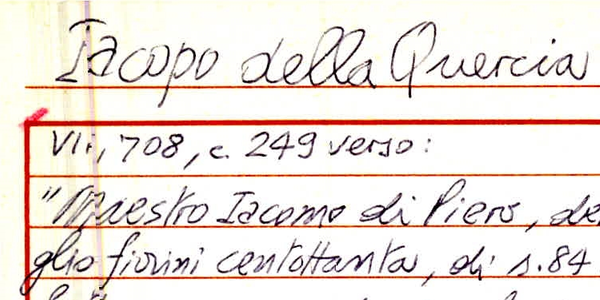 Iacopo della Quercia
VII, 708, c. 249 verso:
"Maestro Iacomo di Piero, de
glio fiorini centottanta, di s. 84